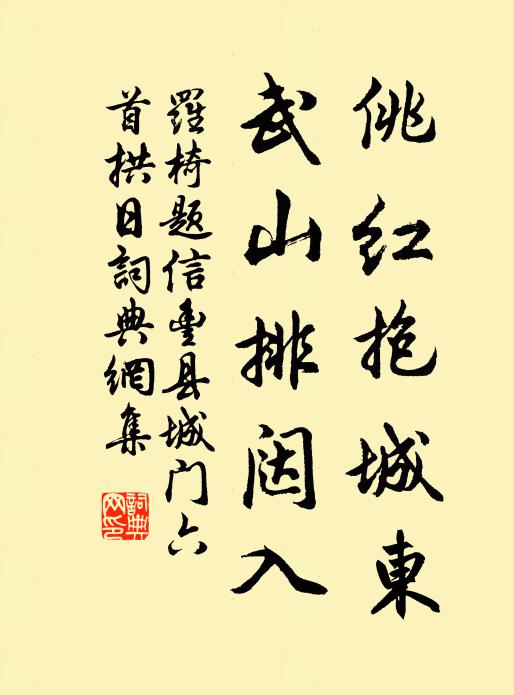 佻红抱城東
武山排闼入
羅椅題信豊县城门六
首拱日詞典網集
詞典网印